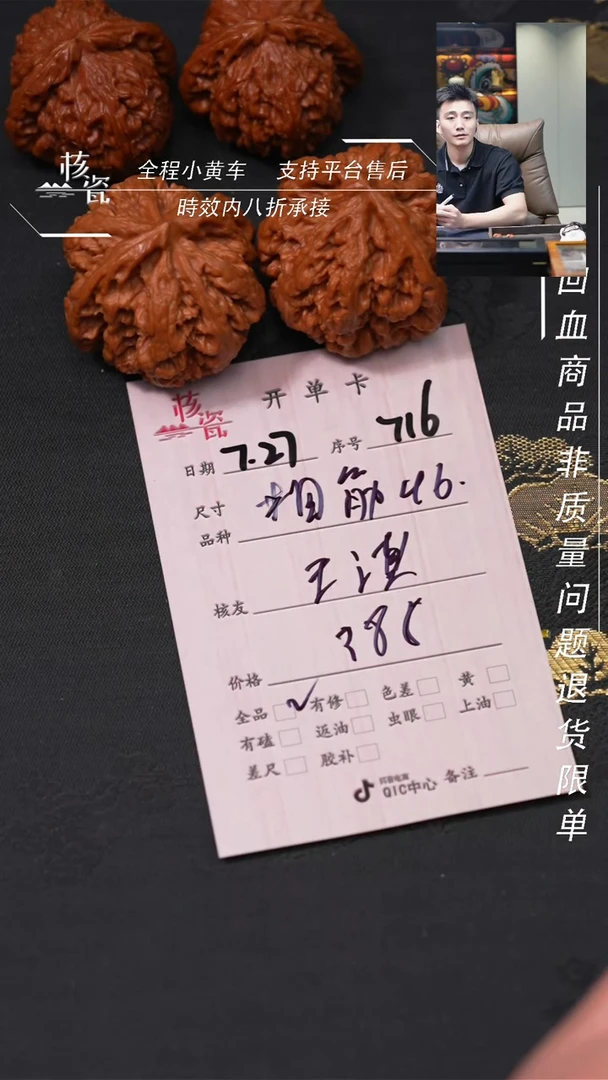 核瓷
全程小黄车 支持平台售后
時效内八折承接
回血商品非质量问题退货限单
核瓷
开单卡
日期 7.27 序号 716
尺寸
品种 粗筋46.
核友 王滇
价格
全品 ✓ 有修 色差 黄
有磕 返油 虫眼 上油
差尺 胶补
抖音电商
QIC中心 备注